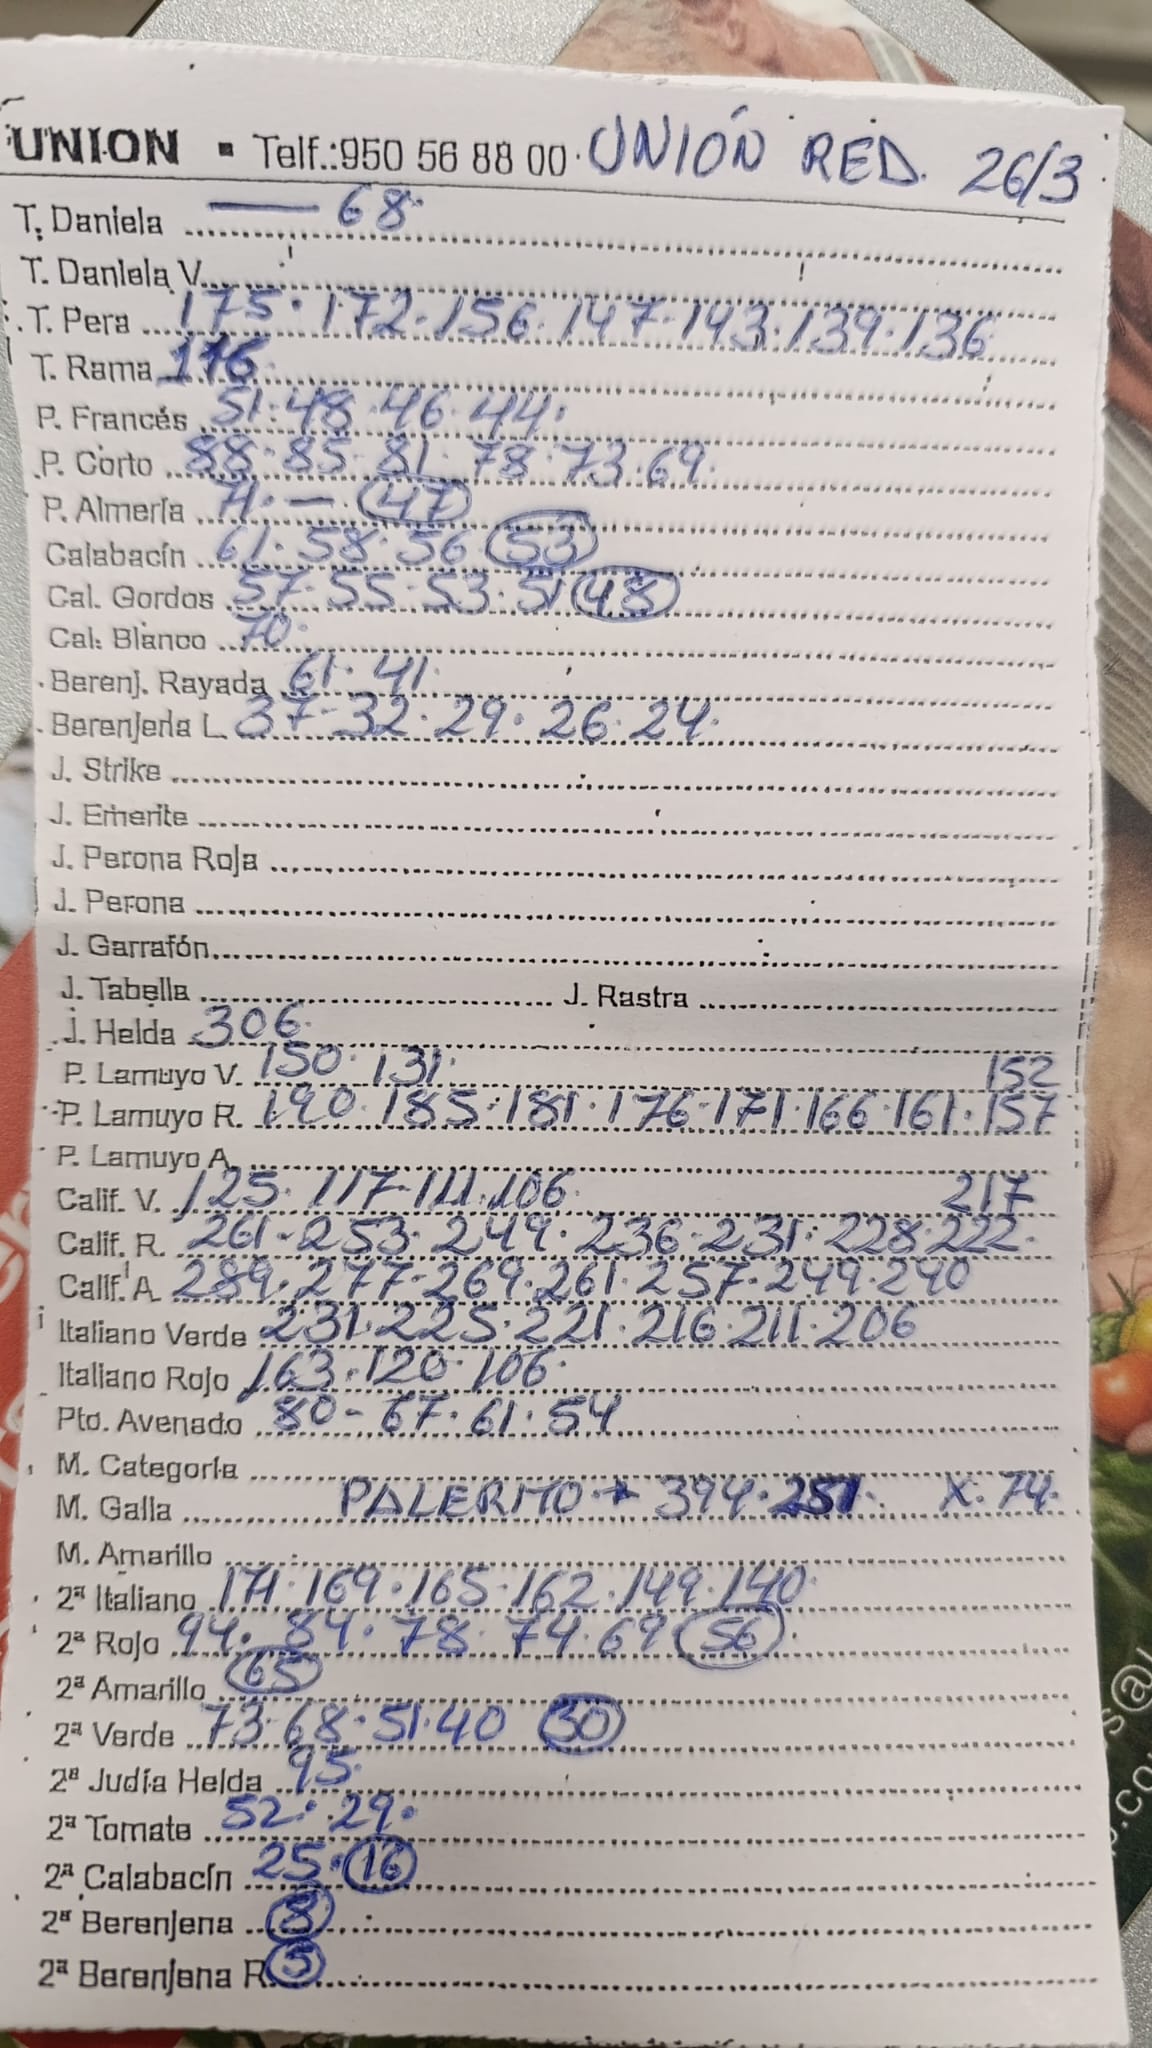 UNION ▪ Telf.:950 56 88 00 · UNIÓN RED. 26/3
T. Daniela — 68.
T. Daniela V.
T. Pera 175 · 172 · 156 · 147 · 143 · 139 · 136
T. Rama 116
P. Francés 51 · 48 · 46 · 44 ·
P. Corto 88 · 85 · 81 · 78 · 73 · 69 ·
P. Almería 71 · — 47
Calabacín 61 · 58 · 56 53
Cal. Gordos 57 · 55 · 53 · 51 48
Cal. Blanco 70 ·
Berenj. Rayada 61 · 41 ·
Berenjena L. 37 - 32 · 29 · 26 · 24 ·
J. Strike
J. Emerite
J. Perona Roja
J. Perona
J. Garrafón
J. Tabella J. Rastra
J. Helda 306 ·
P. Lamuyo V. 150 · 131 · 152
P. Lamuyo R. 190 · 185 · 181 · 176 · 171 · 166 · 161 · 157
P. Lamuyo A.
Calif. V. 125 · 117 - 111 · 106 · 217
Calif. R. 261 - 253 · 249 · 236 · 231 · 228 · 222 ·
Calif. A. 289 · 277 - 269 · 261 · 257 · 249 · 240
Italiano Verde 231 · 225 · 221 · 216 · 211 · 206
Italiano Rojo 163 · 120 · 106 ·
Pto. Avenado 80 - 67 · 61 · 54
M. Categoría
M. Galia PALERMO → 394 · 251 · X · 74 ·
M. Amarillo
2ª Italiano 171 · 169 · 165 · 162 · 149 · 140 ·
2ª Rojo 94 · 84 · 78 · 74 · 69 56 ·
2ª Amarillo 65
2ª Verde 73 · 68 · 51 · 40 30
2ª Judía Helda 95 ·
2ª Tomate 52 · 29 ·
2ª Calabacín 25 · 16
2ª Berenjena 8
2ª Berenjena R. 5